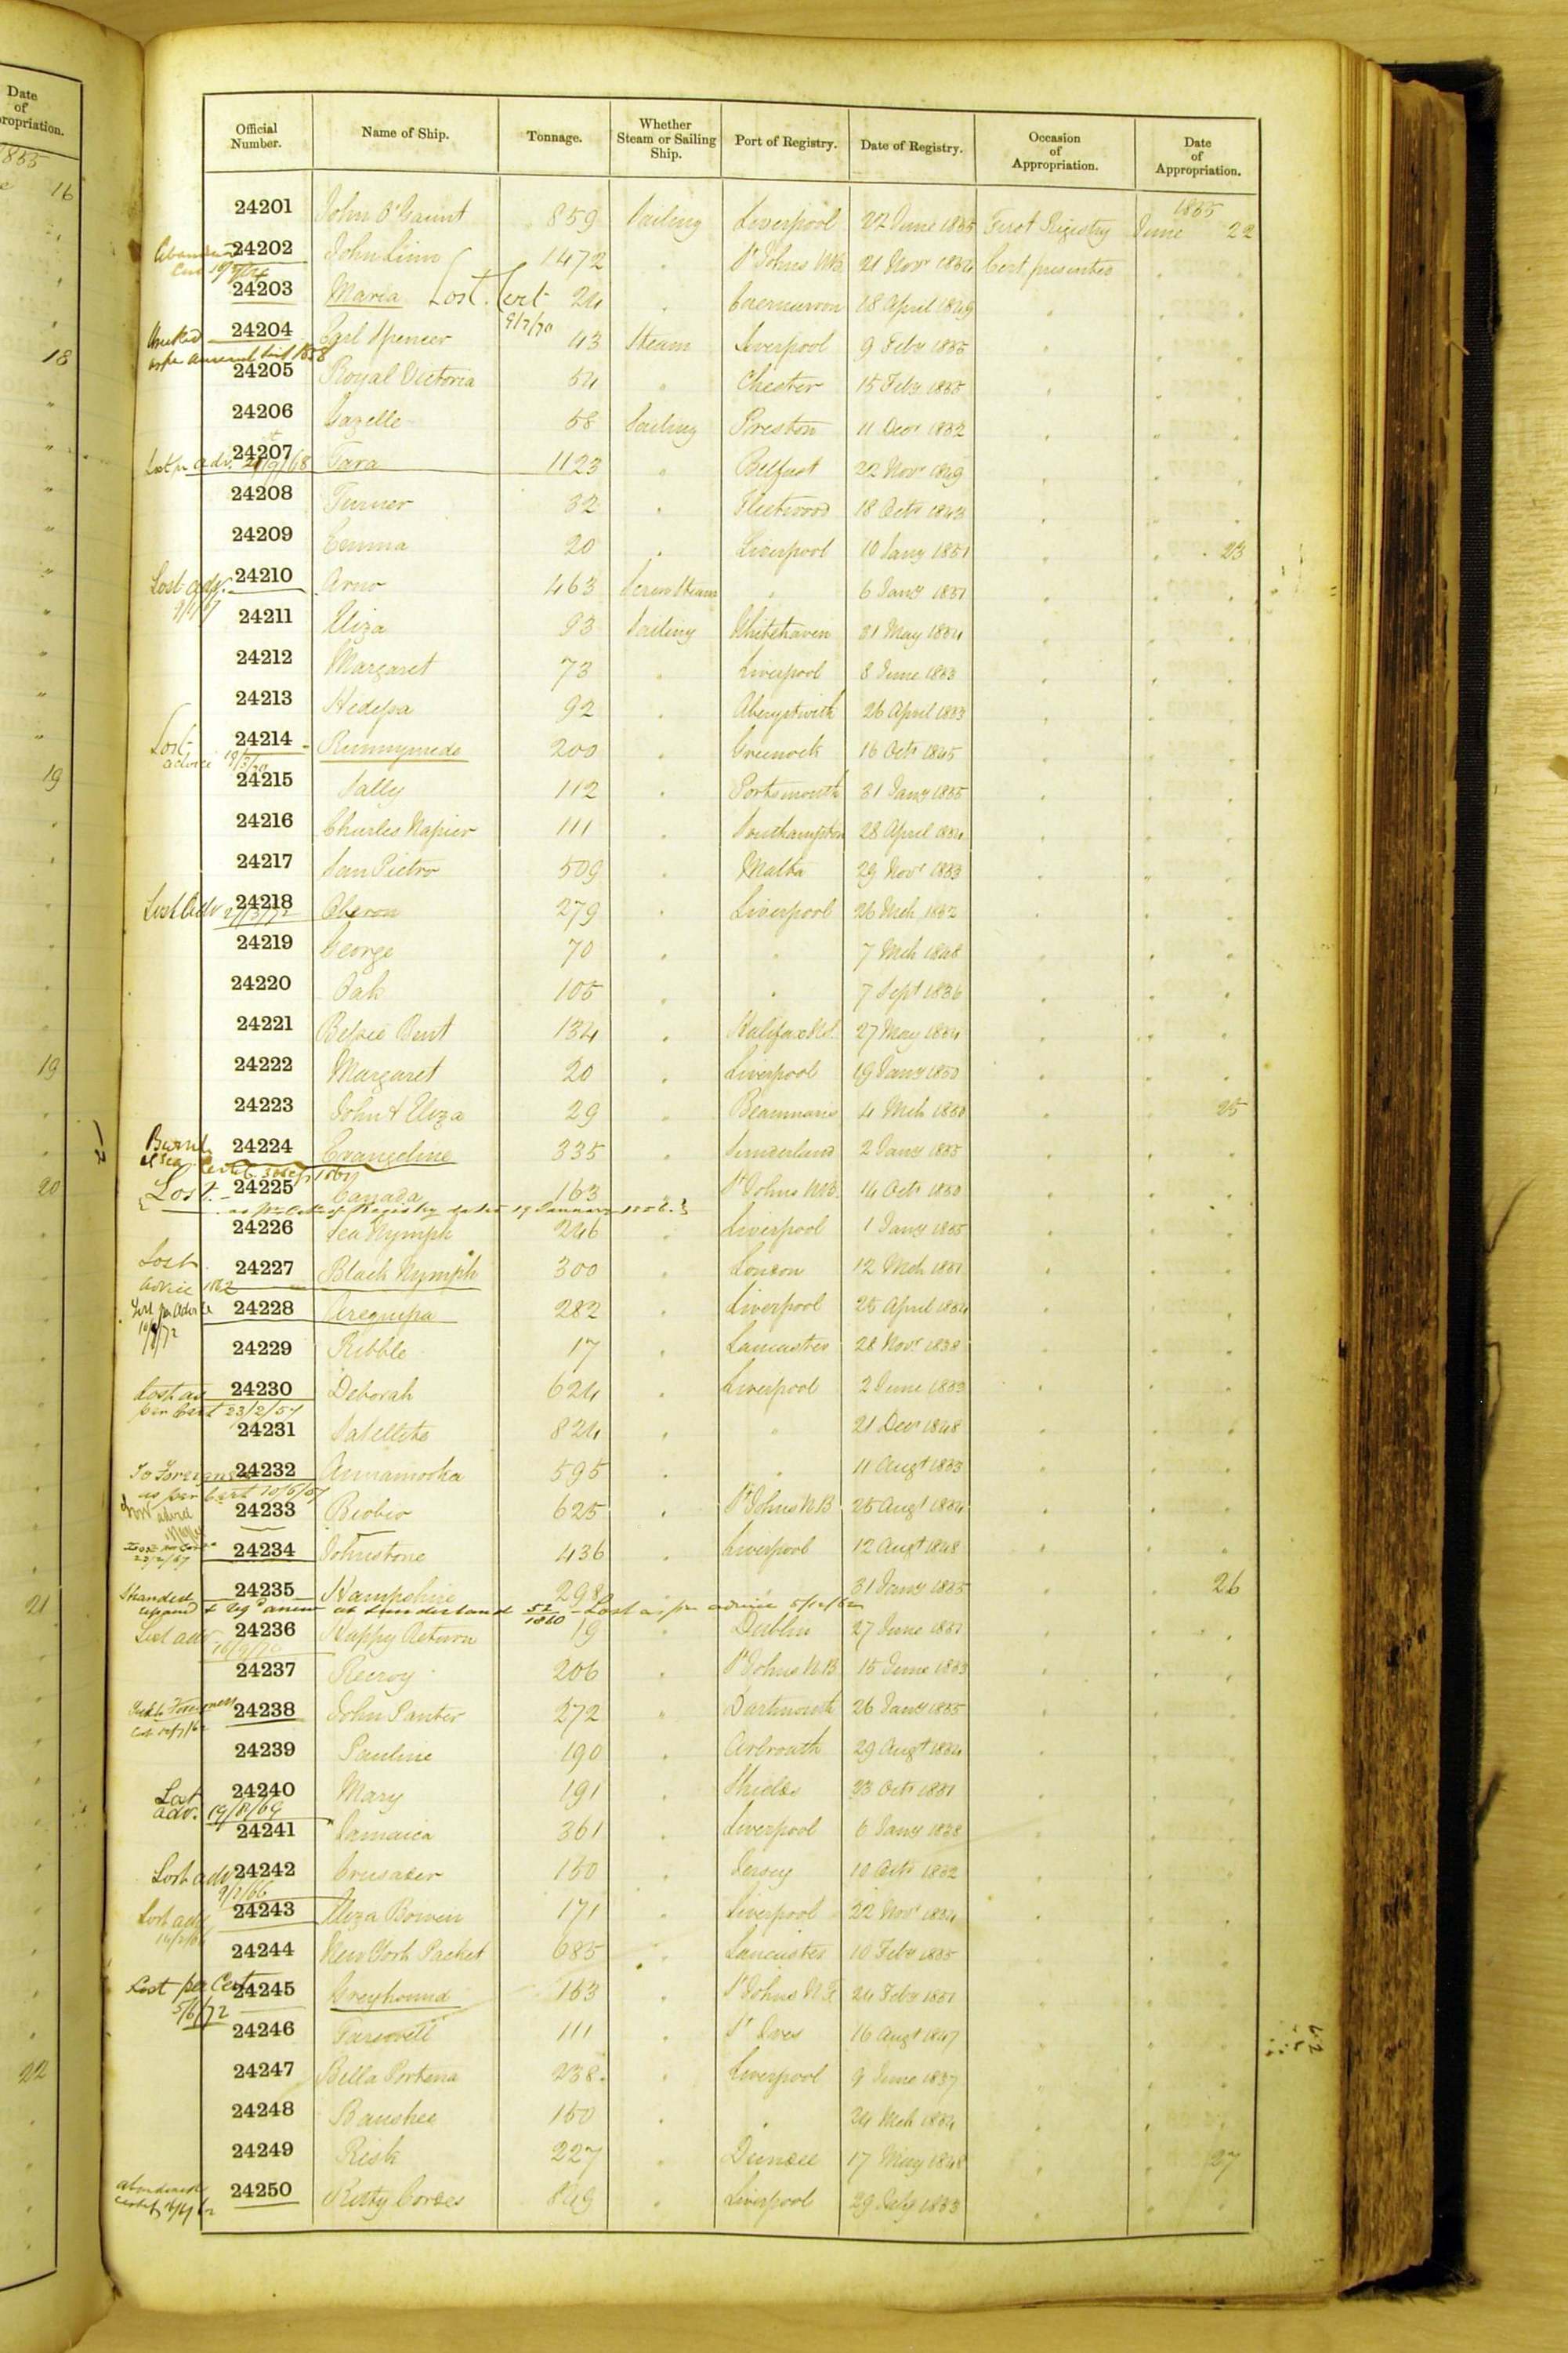 Date
of
ropriation.
1855
16
18
19
19
20
21
22
Official Number. Name of Ship. Tonnage. Whether Steam or Sailing Ship. Port of Registry. Date of Registry. Occasion of Appropriation. Date of Appropriation.
1855
24201 John O'Gaunt 859 Sailing Liverpool 22 June 1855 First Registry June 22
24202 John Linn 1472 " St Johns NB. 21 Novr 1854 Cert. presented " "
24203 Maria Lost. Cert 9/7/70 24 " Caernarvon 18 April 1849 " " "
24204 Earl Spencer 43 Steam Liverpool 9 Feby 1855 " " "
24205 Royal Victoria 54 " Chester 15 Feby 1855 " " "
24206 Gazelle 58 Sailing Preston 11 Decr 1852 " " "
Lost pr adv. 21/9/68 24207 Tara 1123 " Belfast 22 Novr 1849 " " "
24208 Turner 32 " Fleetwood 18 Octr 1843 " " "
24209 Emma 20 " Liverpool 10 Jany 1851 " " 23
Lost adv. 24210 Arno 463 Screw Steam " 6 Jany 1851 " " "
24211 Eliza 93 Sailing Whitehaven 31 May 1854 " " "
24212 Margaret 73 " Liverpool 8 June 1853 " " "
24213 92 " Aberystwith 26 April 1853 " " "
Lost advice 24214 Runnymede 200 " Greenock 16 Octr 1845 " " "
24215 Sally 112 " Portsmouth 31 Jany 1855 " " "
24216 Charles Napier 111 " Southampton 28 April 1854 " " "
24217 San Pietro 509 " Malta 29 Novr 1853 " " "
Lost Adv 24218 Oberon 279 " Liverpool 26 Mch 1852 " " "
24219 George 70 " " 7 Mch 1848 " " "
24220 Oak 105 " " 7 Sept 1836 " " "
24221 134 " Halifax NS. 27 May 1854 " " "
24222 Margaret 20 " Liverpool 19 Jany 1850 " " "
24223 John & Eliza 29 " Beaumaris 4 Mch 1850 " " 25
Burnt at Sea 24224 Evangeline 335 " Sunderland 2 Jany 1855 " " "
Lost. 24225 Canada 163 " St Johns NB. 14 Octr 1850 " " "
as pr Certe of Registry dated 19 January
24226 Sea Nymph 246 " Liverpool 1 Jany 1855 " " "
Lost advice 1862 24227 Black Nymph 300 " London 12 Mch 1851 " " "
Lost pr Advice 24228 Arequipa 282 " Liverpool 25 April 1854 " " "
24229 Ribble 17 " Lancaster 28 Novr 1838 " " "
Lost as per Cert 23/2/57 24230 Deborah 624 " Liverpool 2 June 1853 " " "
24231 Satellite 824 " " 21 Decr 1848 " " "
To Foreigners as per Cert 24232 Annamooka 595 " " 11 Augt 1853 " " "
24233 Biobio 625 " St Johns N.B. 25 Augt 1854 " " "
24234 Johnstone 436 " Liverpool 12 Augt 1848 " " "
Stranded 24235 Hampshire 298 " " 31 Jany 1855 " " 26
& Regd anew at Sunderland 52/1860 - Lost as pr advice 5/12/62
Lost adv 24236 Happy Return 19 " Dublin 27 June 1851 " " "
24237 Recroy 206 " St Johns N.B. 15 June 1853 " " "
24238 John Panter 272 " Dartmouth 26 Jany 1855 " " "
24239 Pauline 190 " Arbroath 29 Augt 1854 " " "
Lost adv. 19/8/69 24240 Mary 191 " Shields 23 Octr 1851 " " "
24241 Jamaica 361 " Liverpool 6 Jany 1838 " " "
Lost adv 24242 Crusader 150 " Jersey 10 Octr 1852 " " "
Lost adv 24243 Eliza Bowen 171 " Liverpool 22 Novr 1854 " " "
24244 New York Packet 685 " Lancaster 10 Feby 1855 " " "
Lost per Cert 5/6/72 24245 Greyhound 153 " St Johns N.F. 24 Feby 1851 " " "
24246 Farewell 111 " St Ives 16 Augt 1847 " " "
24247 Bella Portena 238 " Liverpool 9 June 1837 " " "
24248 Banshee 150 " " 24 Mch 1854 " " "
24249 Risk 227 " Dundee 17 May 1848 " " 27
24250 Kitty Cordes 849 " Liverpool 29 July 1853 " " "